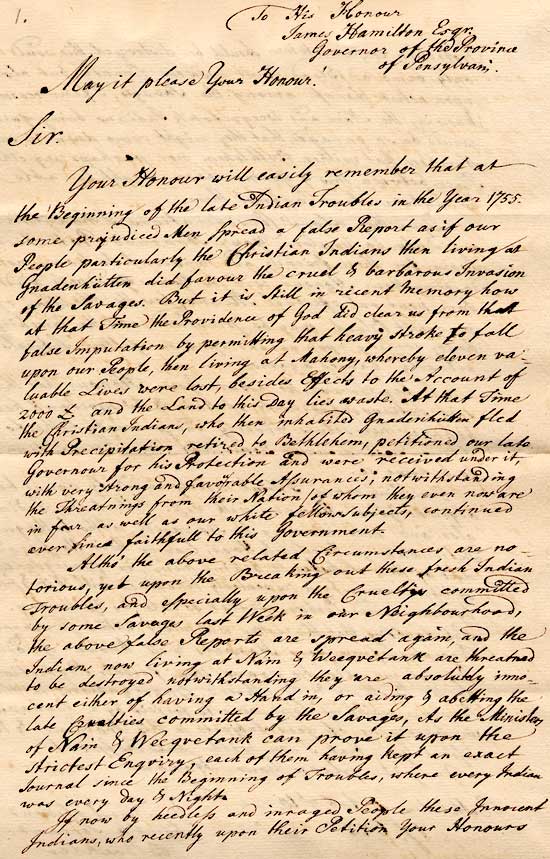 1.
To His Honour
James Hamilton Esqr.
Governor of the Province
of Pensylvani.
May it please Your Honour!
Sir.
Your Honour will easily remember that at
the Beginning of the late Indian Troubles in the Year 1755.
some prejudiced Men spread a false Report as if our
People particularly the Christian Indians then living at
Gnadenhütten did favour the cruel & barbarous Invasion
of the Savages. But it is still in recent Memory how
at that Time the Providence of God did clear us from that
false Imputation by permitting that heavy stroke to fall
upon our People, then living at Mahony, whereby eleven va-
luable Lives were lost, besides Effects to the Account of
2000 £ and the Land to this Day lies waste. At that Time
the Christian Indians, who then inhabited Gnadenhütten fled
with Precipitation retired to Bethlehem, petitioned our late
Governour for his Protection and were received under it,
with very strong and favorable Assurances; notwithstanding
the Threatnings from their Nation (of whom they even now are
in fear as well as our white fellow subjects, continued
ever since faithfull to this Government.
Altho' the above related Circumstances are no-
torious, yet upon the Breaking out these fresh Indian
Troubles, and especially upon the Cruelty committed
by some Savages last Week in our Neighbourhood,
the above false Reports are spread again, and the
Indians now living at Nain & Weequetank are threatned
to be destroyed notwithstanding they are absolutely inno-
cent either of having a Hand in, or aiding & abetting the
late Cruelties committed by the Savages, As the Ministers
of Nain & Weequetank can prove it upon the
strictest Enquiry, each of them having kept an exact
Journal since the Beginning of Troubles, where every Indian
was every day & Night.
If now by heedless and inraged People these Innocent
Indians, who recently upon their Petition Your Honours